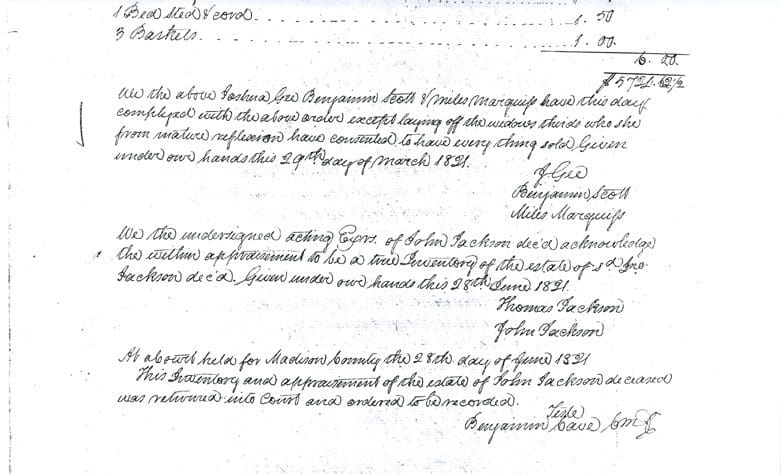 1 Bed sted & cord . . . . . . . . . . . . . . . . . . . . . . . . . . . . . . . . 1. 50
3 Baskets . . . . . . . . . . . . . . . . . . . . . . . . . . . . . . . . . . . 1. 00.
6. 00.
$5721.62½
We the above Joshua Gee Benjamin Scott & Miles Marquiss have this day
complyed with the above order except laying off the widows thirds who she
from mature reflexion have consented to have every thing sold Given
under our hands this 29th day of March 1821.
J Gee
Benjamin Scott
Miles Marquiss
We the undersigned acting Exrs. of John Jackson dec'd acknowledge
the within appraisement to be a true Inventory of the estate of sd Jno
Jackson dec'd. Given under our hands this 28th June 1821.
Thomas Jackson
John Jackson
At a Court held for Madison County the 28th day of June 1821
This Inventory and appraisement of the estate of John Jackson deceased
was returned into Court and ordered to be recorded.
Teste
Benjamin Cave CMC